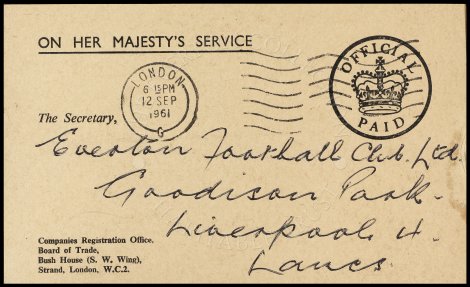 ON HER MAJESTY'S SERVICE
OFFICIAL
PAID
LONDON
6 15PM
12 SEP
1961
G
The Secretary,
Everton Football Club. Ltd.
Goodison Park.
Liverpool 4.
Lancs
Companies Registration Office.
Board of Trade,
Bush House (S. W. Wing),
Strand, London, W.C.2.